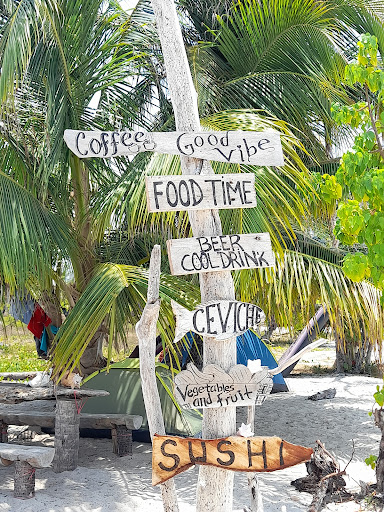 Coffee Good Vibe
FOOD TIME
BEER
COOL DRINK
CEVICHE
Vegetables
and fruit
SUSHI